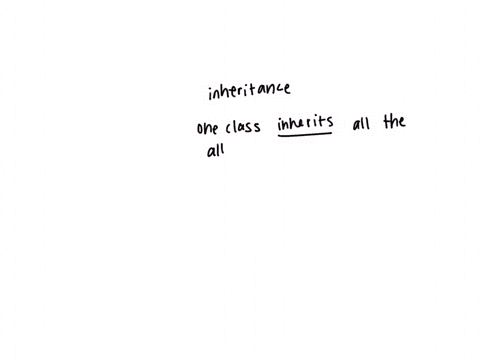 inheritance
one class inherits all the
all